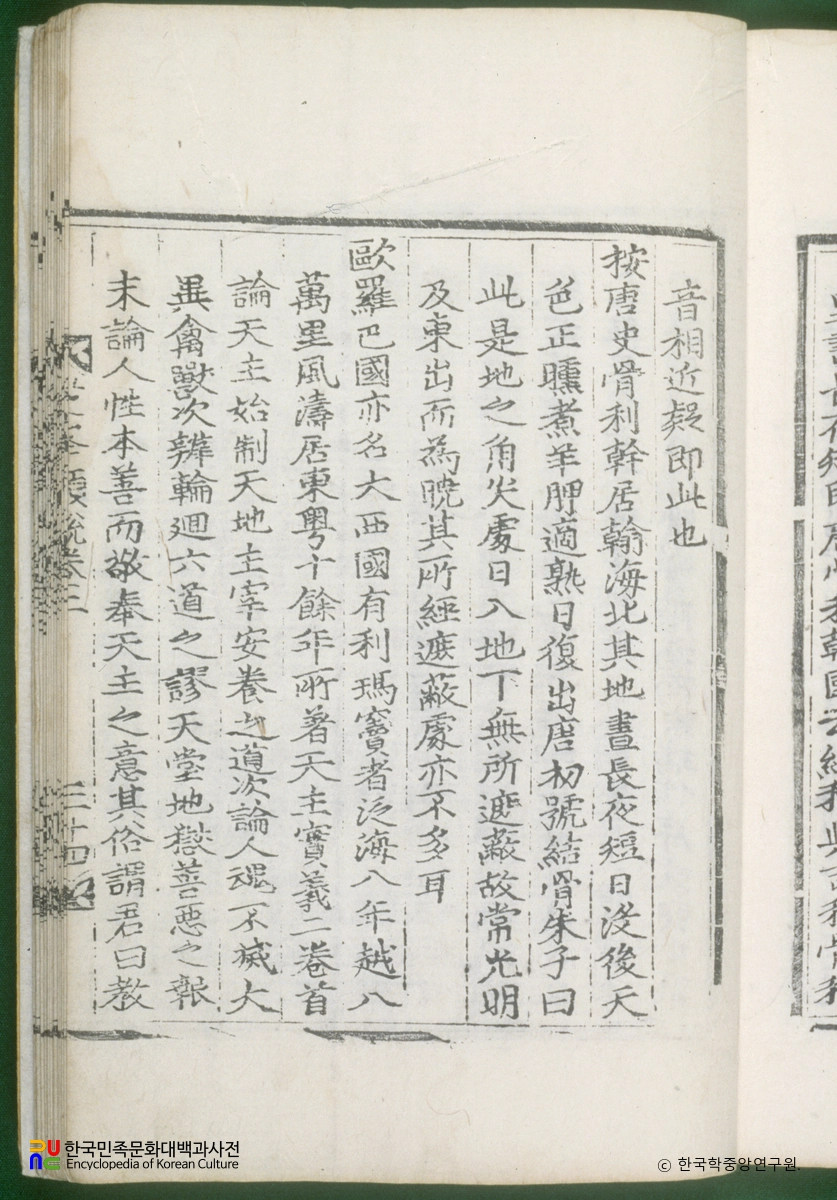 音相近疑即此也
按唐史骨利幹居翰海北其地晝長夜短日沒後天
色正曛煮羊胛適熟日復出唐初號結骨朱子曰
此是地之角尖處日入地下無所遮蔽故常光明
及東出而為曉其所經遮蔽處亦不多耳
歐羅巴國亦名大西國有利瑪竇者泛海八年越八
萬里風濤居東粤十餘年所著天主實義二卷首
論天主始制天地主宰安養之道次論人魂不滅大
異禽獸次辨輪廻六道之謬天堂地獄善惡之報
末論人性本善而敬奉天主之意其俗謂君曰教
類說卷二
三十四
한국민족문화대백과사전
Encyclopedia of Korean Culture
© 한국학중앙연구원